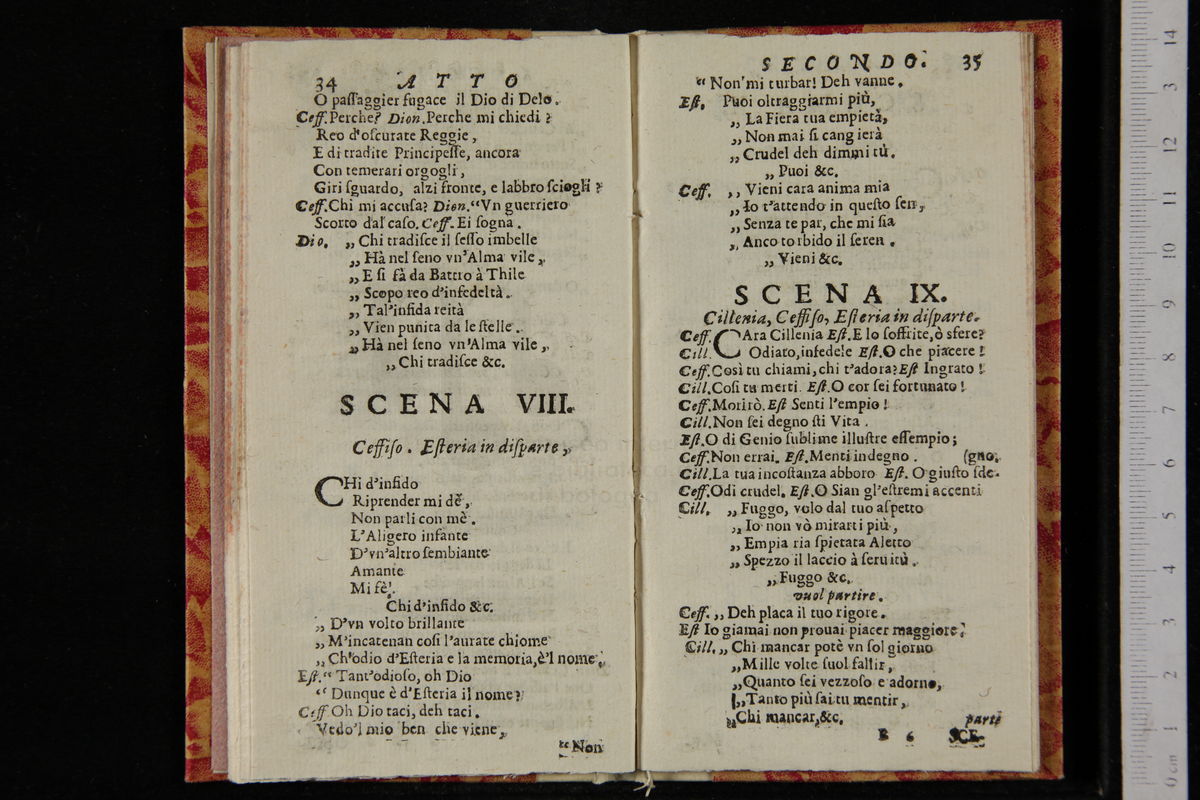 34 ATTO
O paſſaggier fugace il Dio di Delo.
Ceff. Perche? Dion. Perche mi chiedi?
Reo d'oſcurate Reggie,
E di tradite Principeſſe, ancora
Con temerari orgogli,
Giri ſguardo, alzi fronte, e labbro ſciogli?
Ceff. Chi mi accuſa? Dion. “Vn guerriero
Scorto dal caſo. Ceff. Ei ſogna.
Dio. „ Chi tradiſce il ſeſſo imbelle
„ Hà nel ſeno vn'Alma vile,
„ E ſi fà da Battro à Thile
„ Scopo reo d'infedeltà.
„ Tal'infida reità
„ Vien punita da le ſtelle.
„ Hà nel ſeno vn'Alma vile,
„ Chi tradiſce &c.
SCENA VIII.
Ceffiſo. Eſteria in diſparte,
CHi d'infido
Riprender mi dè,
Non parli con mè.
L'Aligero infante
D'vn'altro ſembiante
Amante
Mi fè.
Chi d'infido &c.
„ D'vn volto brillante
„ M'incatenan coſi l'aurate chiome
„ Ch'odio d'Eſteria e la memoria, è'l nome.
Eſt. “ Tant'odioſo, oh Dio
“ Dunque è d'Eſteria il nome?
Ceff Oh Dio taci, deh taci.
Vedo'l mio ben che viene,
“ Non
SECONDO. 35
“ Non mi turbar! Deh vanne.
Eſt. Puoi oltraggiarmi più,
„ La Fiera tua empietà,
„ Non mai ſi cangierà
„ Crudel deh dimmi tù.
„ Puoi &c.
Ceff. „ Vieni cara anima mia
„ Io t'attendo in queſto ſen,
„ Senza te par, che mi ſia
„ Anco torbido il ſeren.
„ Vieni &c.
SCENA IX.
Cillenia, Ceffiſo, Eſteria in diſparte.
Ceff. CAra Cillenia Eſt. E lo ſoffrite, ò sfere?
Cill. Odiato, infedele Eſt. O che piacere!
Ceff. Così tu chiami, chi t'adora? Eſt Ingrato!
Cill. Coſi tu merti. Eſt. O cor ſei fortunato!
Ceff. Morirò. Eſt Senti l'empio!
Cill. Non ſei degno ſti Vita.
Eſt. O di Genio ſublime illuſtre eſſempio;
Ceff. Non errai. Eſt. Menti indegno. (gno.
Cill. La tua incoſtanza abboro Eſt. O giuſto ſde-
Ceff. Odi crudel. Eſt. O Sian gl'eſtremi accenti
Cill. „ Fuggo, volo dal tuo aſpetto
„ Io non vò mirarti più,
„ Empia ria ſpietata Aletto
„ Spezzo il laccio à ſeruitù.
„ Fuggo &c.
vuol partire.
Ceff. „ Deh placa il tuo rigore.
Eſt Io giamai non prouai piacer maggiore.
Cill. „ Chi mancar potè vn ſol giorno
„ Mille volte ſuol fallir,
„ Quanto ſei vezzoſo e adorno,
„ Tanto più ſai tu mentir,
„ Chi mancar, &c. parte
B 6 SCE-
14
13
12
11
10
9
8
7
6
5
4
3
2
1
0 cm